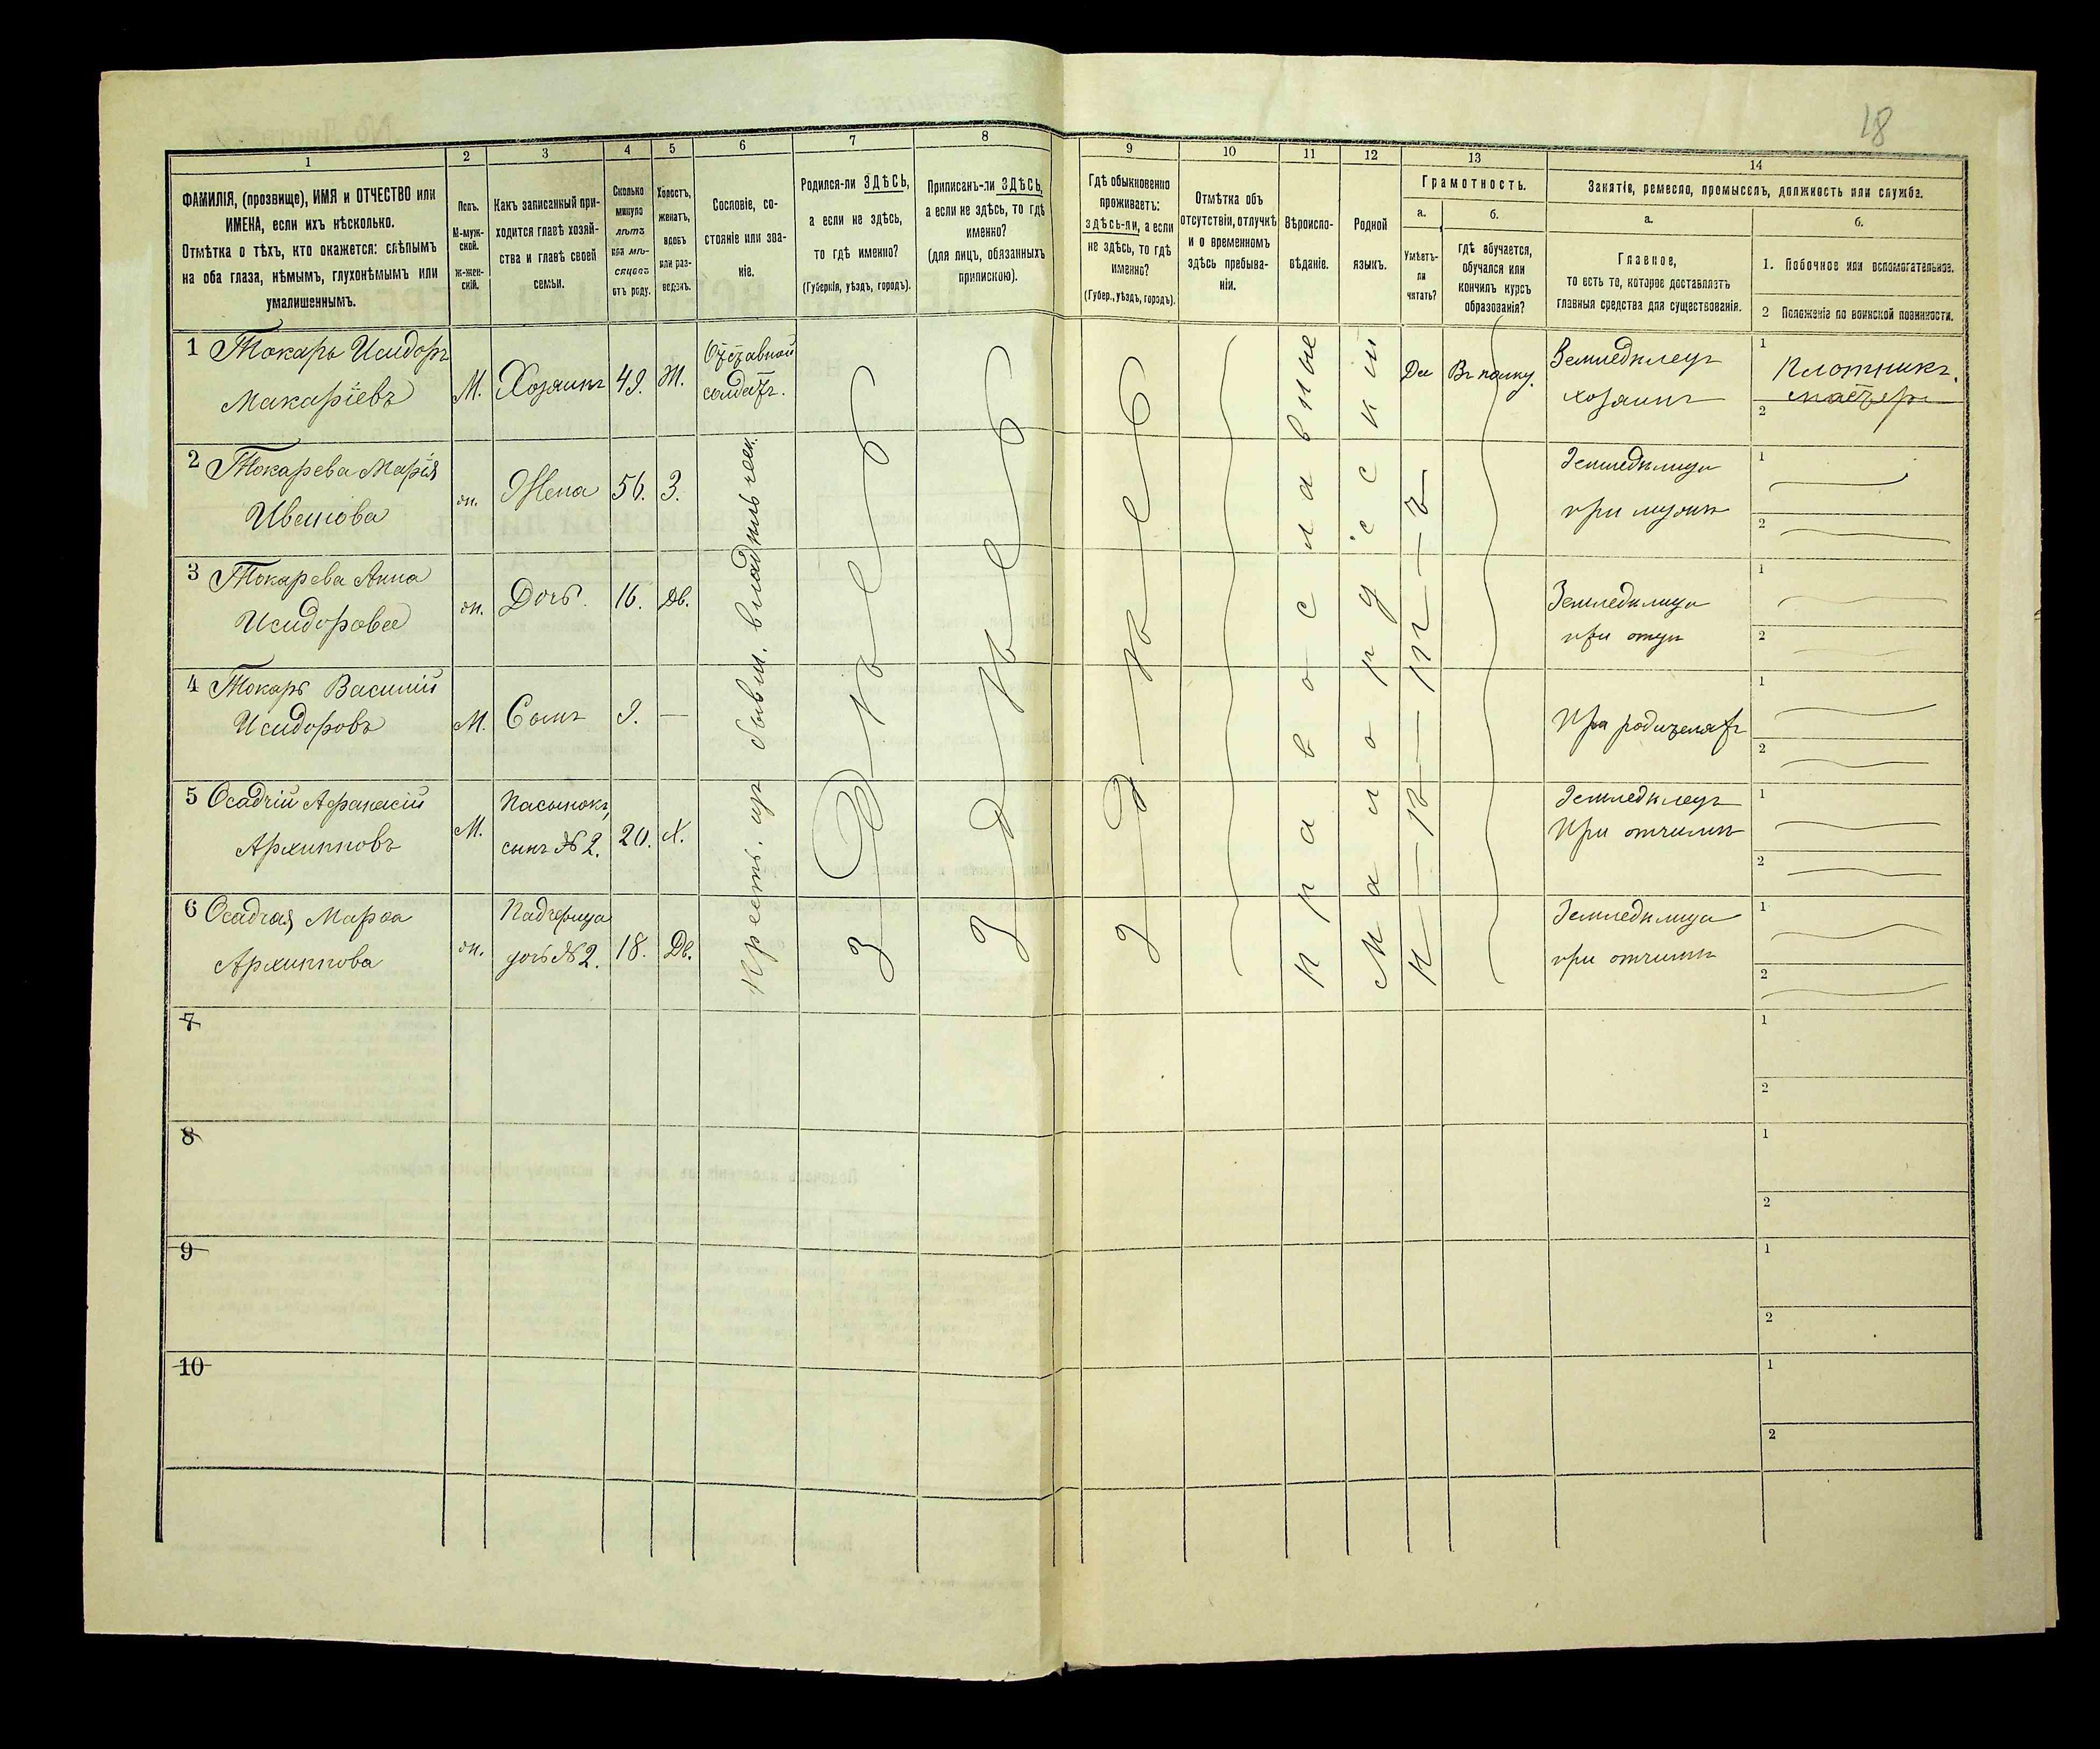 18
1
2
3
4
5
6
7
8
9
10
11
12
13
14
ФАМИЛІЯ, (прозвище), ИМЯ и ОТЧЕСТВО или
ИМЕНА, если ихъ нѣсколько.
Отмѣтка о тѣхъ, кто окажется: слѣпымъ
на оба глаза, нѣмымъ, глухонѣмымъ или
умалишеннымъ.
Полъ.
М-муж-
ской.
ж-жен-
скій.
Какъ записанный при-
ходится главѣ хозяй-
ства и главѣ своей
семьи.
Сколько
минуло
лѣтъ
или мѣ-
сяцевъ
отъ роду.
Холостъ,
женатъ,
вдовъ
или раз-
веденъ.
Сословіе, со-
стояніе или зва-
ніе.
Родился-ли ЗДѢСЬ,
а если не здѣсь,
то гдѣ именно?
(Губернія, уѣздъ, городъ).
Приписанъ-ли ЗДѢСЬ,
а если не здѣсь, то гдѣ
именно?
(для лицъ, обязанныхъ
припискою).
Гдѣ обыкновенно
проживаетъ:
здѣсь-ли, а если
не здѣсь, то гдѣ
именно?
(Губер., уѣздъ, городъ).
Отмѣтка объ
отсутствіи, отлучкѣ
и о временномъ
здѣсь пребыва-
ніи.
Вѣроиспо-
вѣданіе.
Родной
языкъ.
Грамотность.
а.
Умѣетъ-
ли
читать?
б.
гдѣ обучается,
обучался или
кончилъ курсъ
образованія?
Занятіе, ремесло, промыселъ, должность или служба.
а.
Главное,
то есть то, которое доставляетъ
главныя средства для существованія.
б.
1. Побочное или вспомогательное.
2 Положеніе по воинской повинности.
1 Токарь Исидоръ
Макаріевъ
М.
Хозяинъ
49.
Ж.
Отставной
солдатъ.
Да
Въ полку.
Земледѣлецъ
хозяинъ
1
Плотникъ.
мастеръ
2
2 Токарева Марія
Иванова
ж.
Жена
56.
З.
Земледѣлица
при мужѣ
1
2
3 Токарева Анна
Исидорова
ж.
Дочь.
16.
Дв.
Земледѣлица
при отцѣ
1
2
4 Токарь Василій
Исидоровъ
М.
Сынъ
9.
—
При родителяхъ
1
2
5 Осадчій Афанасій
Архиповъ
М.
Пасынокъ,
сынъ № 2.
20.
Х.
Земледѣлецъ
При отчимѣ
1
2
6 Осадчая, Марфа
Архипова
ж.
Падчерица
дочь № 2.
18.
Дв.
Земледѣлица
при отчимѣ
1
2
Крестъ. изъ бывш. владѣльческ.
здѣсь
здѣсь
здѣсь
православные
малорусскій
7
1
2
8
1
2
9
1
2
10
1
2